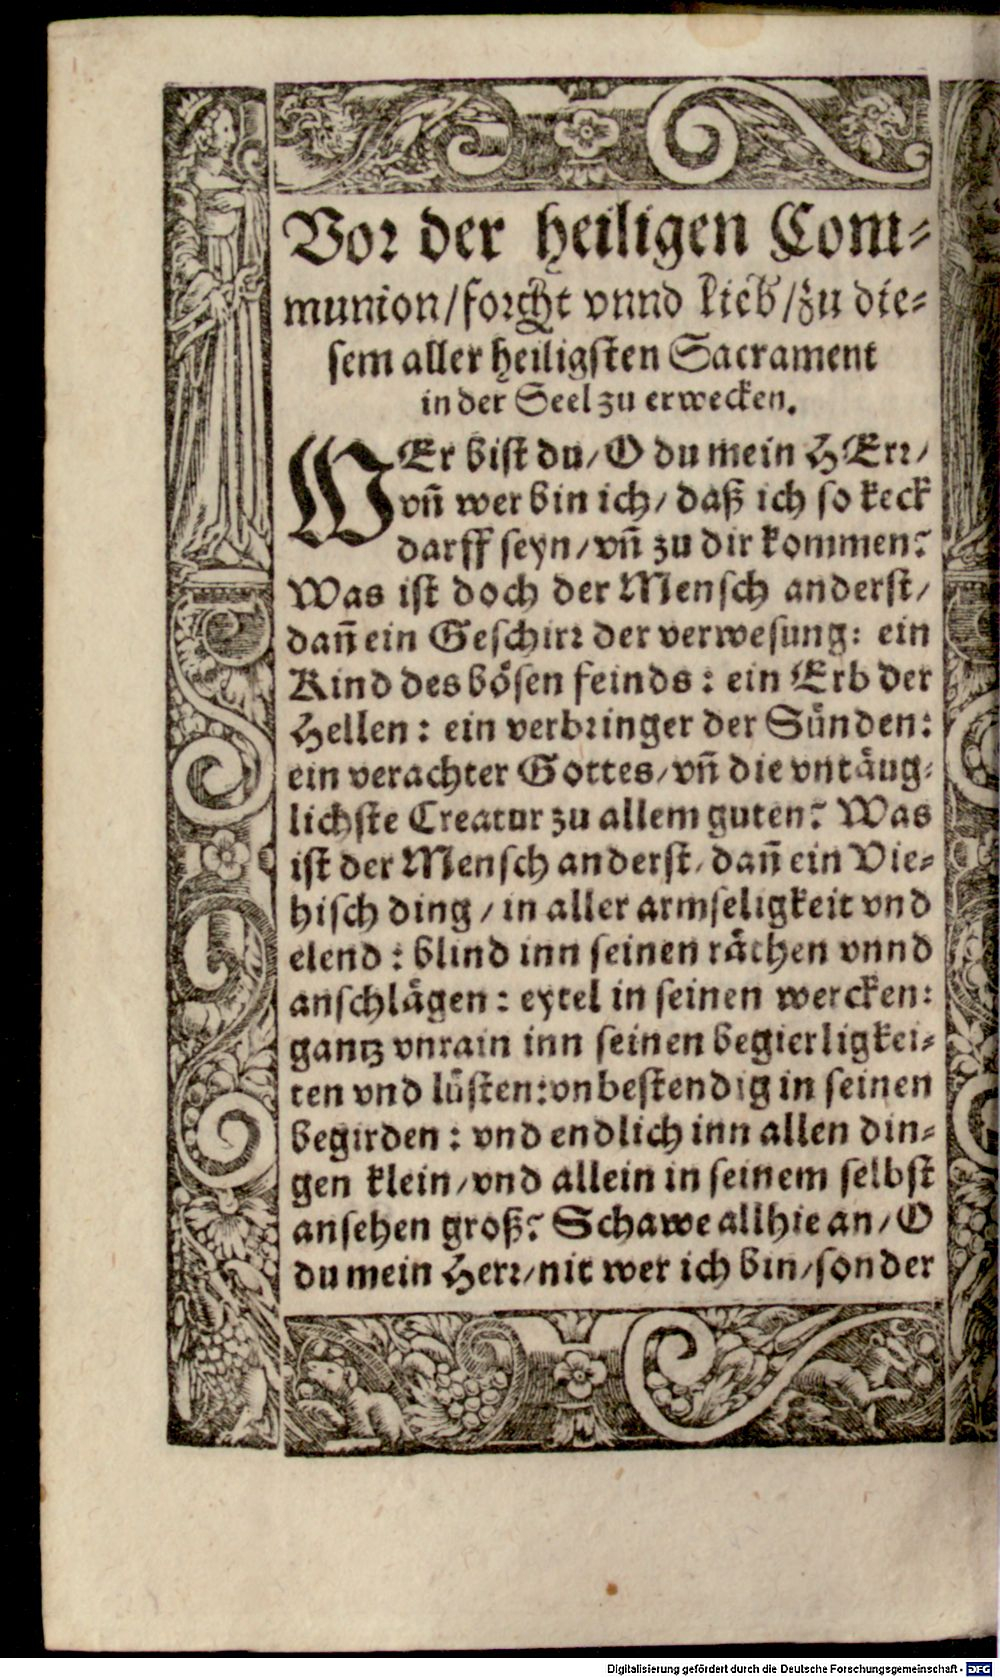 Vor der heiligen Com⸗
munion/forcht vnnd Lieb/zu die⸗
sem aller heiligsten Sacrament
in der Seel zu erwecken.
WEr bist du/ O du mein HErr/
vñ wer bin ich/ daß ich so keck
darff seyn/ vñ zu dir kommen?
Was ist doch der Mensch anderst/
dañ ein Geschirr der verwesung: ein
Kind des bösen feinds: ein Erb der
Hellen: ein verbringer der Sünden:
ein verachter Gottes/ vñ die vntäug⸗
lichste Creatur zu allem guten? Was
ist der Mensch anderst/ dañ ein Vie⸗
hisch ding/ in aller armseligkeit vnd
elend: blind inn seinen räthen vnnd
anschlägen: eytel in seinen wercken:
gantz vnrain inn seinen begierligkei⸗
ten vnd lüsten: vnbestendig in seinen
begirden: vnd endlich inn allen din⸗
gen klein/ vnd allein in seinem selbst
ansehen groß? Schawe allhie an/ O
du mein Herr/ nit wer ich bin/ sonder
Digitalisierung gefördert durch die Deutsche Forschungsgemeinschaft - DFG